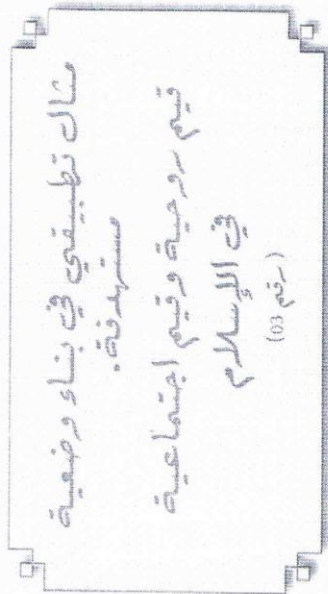 مثال تطبيقي في بناء وضعية
مستهدفة.
قيم روحية وقيم اجتماعية
في الإسلام
(رقم 03)